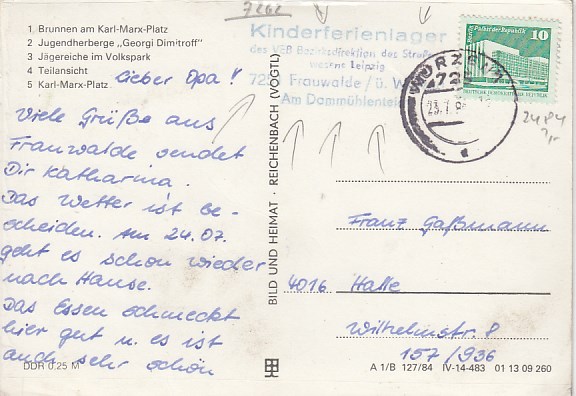 7262
1 Brunnen am Karl-Marx-Platz
2 Jugendherberge „Georgi Dimitroff"
3 Jägereiche im Volkspark
4 Teilansicht
5 Karl-Marx-Platz
Kinderferienlager
des VEB Bezirksdirektion des Straßen
wesens Leipzig
Frauwalde / ü. W
Am Dammühlenteich
10
Palast der Republik
DEUTSCHE DEMOKRATISCHE REPUBLIK
WURZEN
72
2484
Lieber Opa!
Viele Grüße aus
Frauwalde sendet
Dir Katharina.
Das Wetter ist be-
scheiden. Am 24.07.
geht es schon wieder
nach Hause.
Das Essen schmeckt
hier gut u. es ist
auch sehr schön
DDR 0,25 M
BILD UND HEIMAT · REICHENBACH (VOGTL)
Franz Gaßmann
4016 Halle
Wilhelmstr. 8
157/936
A 1/B 127/84 IV-14-483 01 13 09 260